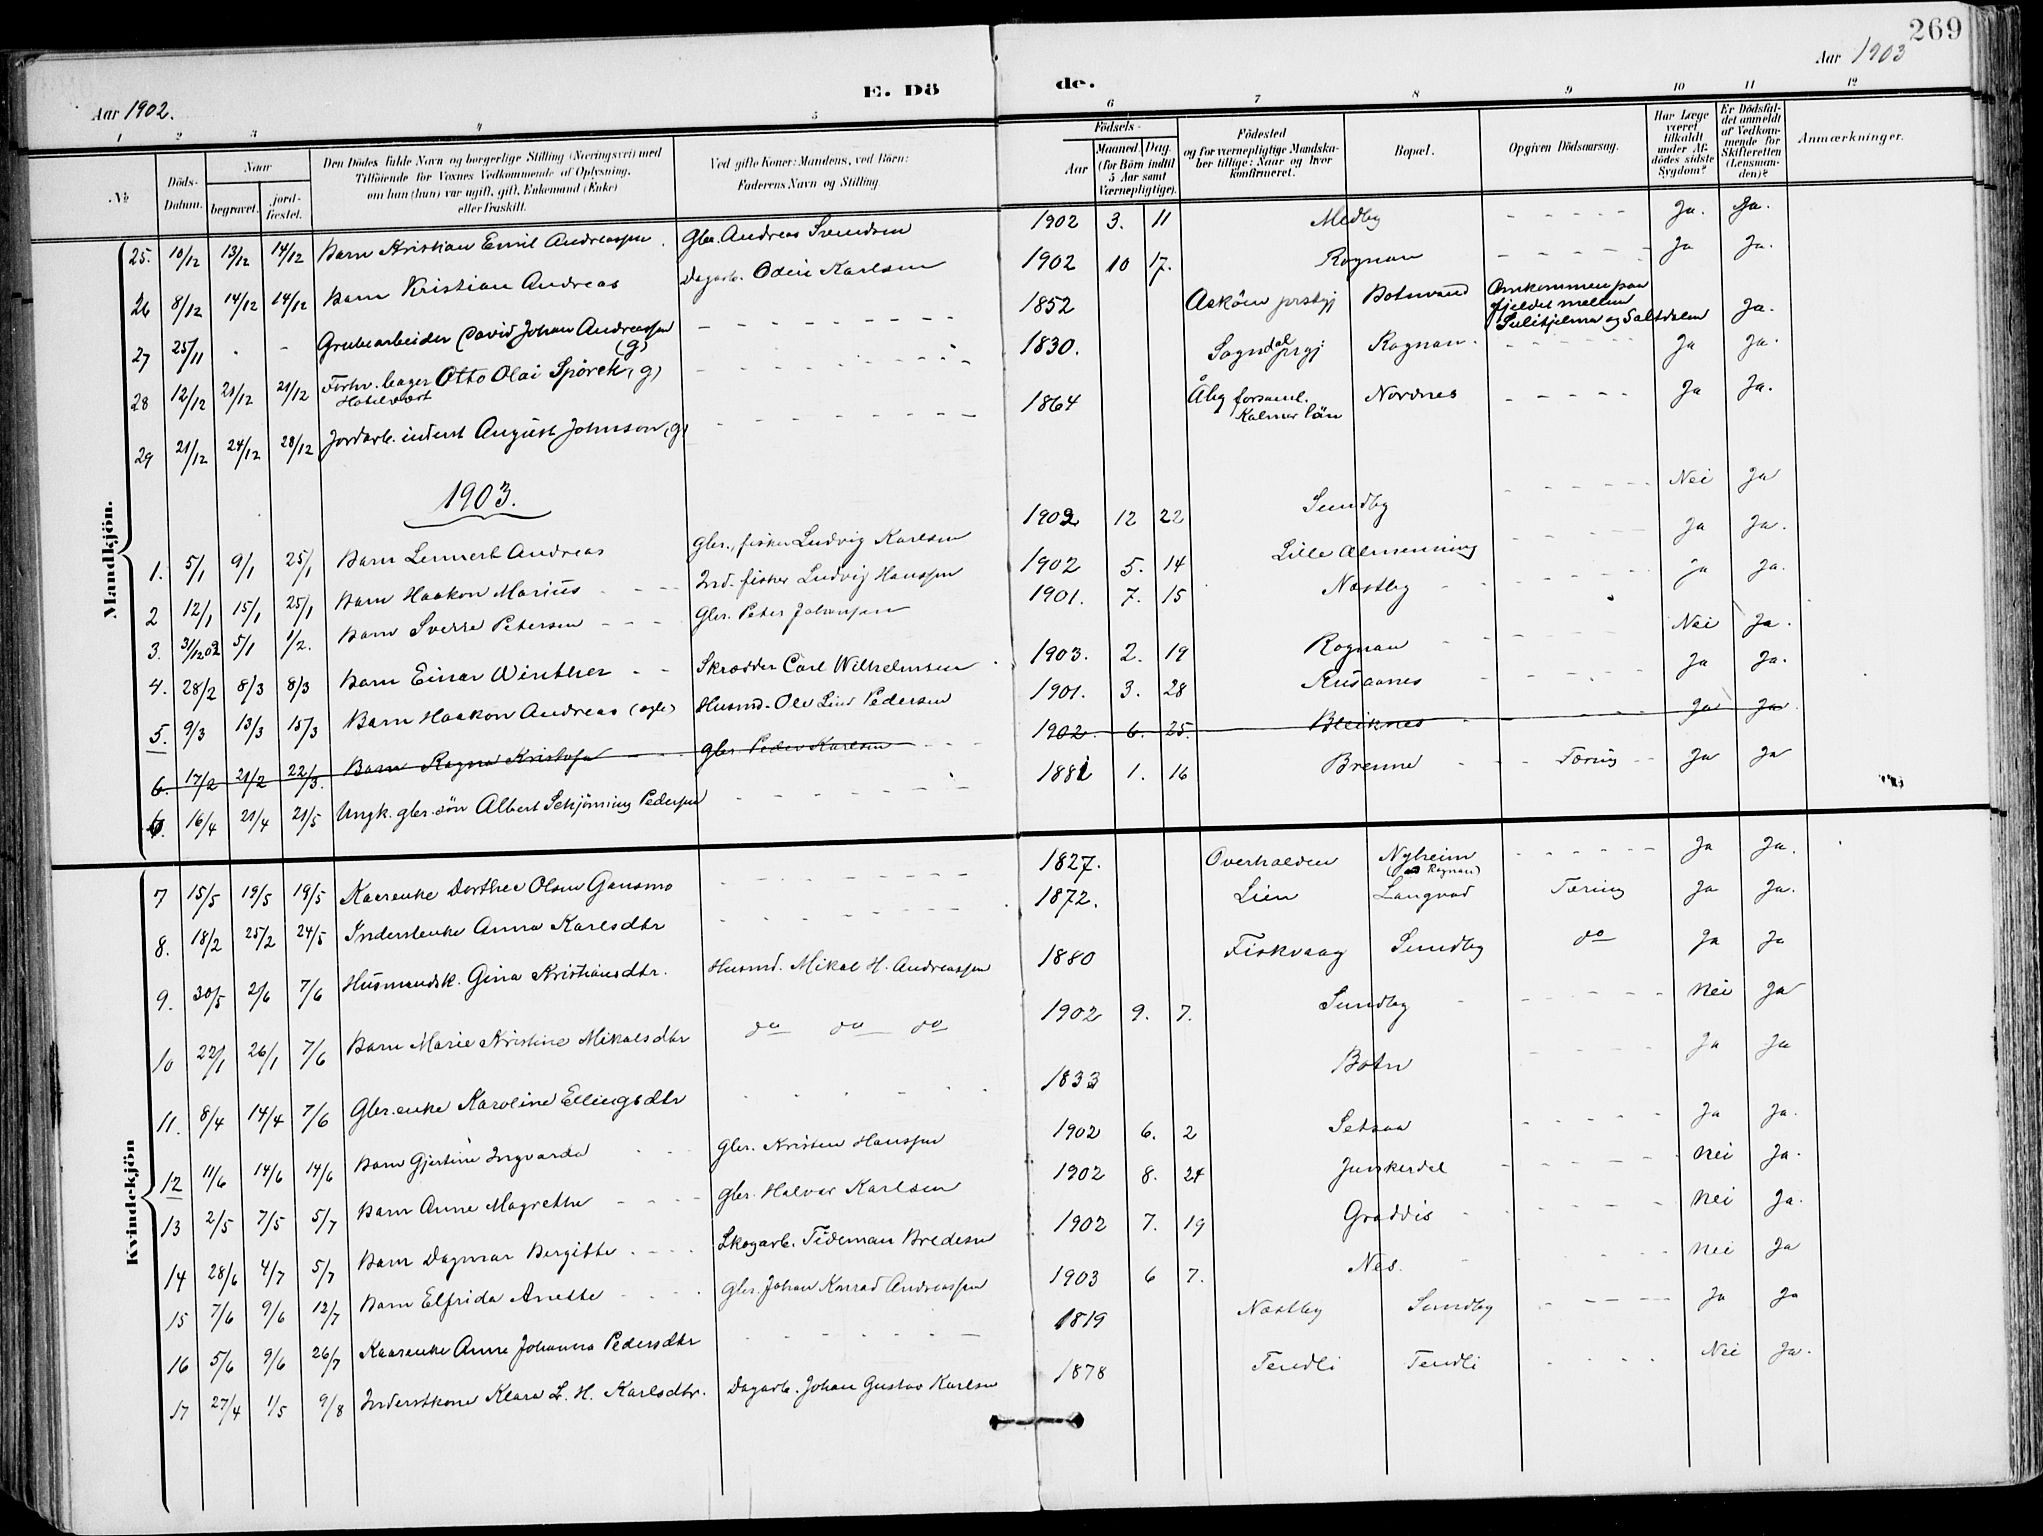 269
Aar 1902.
E. Dö
de.
Aar 1903
1 2 3 4 5 6 7 8 9 10 11 12
No
Döds-Datum.
Naar
begravet.
jord-fæstet.
Den Dödes fulde Navn og borgerlige Stilling (Næringsvei) med
Tilföiende for Voxnes Vedkommende af Oplysning,
om han (hun) var ugift, gift, Enkemand (Enke)
eller fraskilt.
Ved gifte Koner: Mandens, ved Börn:
Faderens Navn og Stilling
Födsels-
Aar
Maaned. Dag.
(for Börn indtil
5 Aar samt
Værnepligtige).
Födested
og for værnepligtige Mandska-
ber tillige: Naar og hvor
konfirmeret.
Bopæl.
Opgiven Dödsaarsag.
Har Læge
været
tilkaldt
under Af-
dödes sidste
Sygdom?
Er Dödsfal-
det anmeldt
af Vedkom-
mende for
Skifteretten
(Lensman-
den)?
Anmærkninger.
Mandkjön.
25. 10/12 13/12 14/12 Barn Kristian Emil Andreassen. Gbr. Andreas Svendsen 1902 3. 11 Medby - - - - - Ja. Ja.
26 8/12 14/12 14/12 Barn Kristian Andreas Dagarb. Odin Karlsen 1902 10 17. Rognan - - - - - Ja Ja.
27 25/11 - - Grubearbeider David Johan Andreassen (g) - - - - - 1852 Asköen prstgj Botnvand Omkommen paa
fjeldet mellem
Sulitjelma og Saltdalen Ja.
28 12/12 21/12 21/12 Forhv. bager Otto Olai Spörck (g)
Hotelvært - - - - - 1830. Sogndal prgj Rognan. - - - - - Ja Ja.
29 21/12 24/12 28/12 Jordarb. inderst August Johnson (g) - - - - - 1864 Åby forsaml.
Kalmar län Nordnes - - - - - Ja Ja.
1903.
1. 5/1 9/1 25/1 Barn Lennert Andreas Gbr., fisker Ludvig Karlsen 1902 12 22 Sundby - - - - - Nei Ja
2 12/1 15/1 25/1 Barn Haakon Marius - - - Ind. fisker Ludvig Hanssen 1902 5. 14 Lille Almenning - - - - Ja Ja.
3. 31/12 02 5/1 1/2. Barn Sverre Petersen - - - Gbr. Peter Johansen 1901. 7. 15 Næstby - - - - - Ja Ja.
4. 28/2 8/3 8/3 Barn Einar Winther - - Skrædder Carl Wilhelmsen 1903. 2. 19 Rognan - - - - - Nei Ja.
5. 9/3 13/3 15/3 Barn Haakon Andreas (ægte) Husmd. Ole Lind Pedersen 1901. 3. 28 Rusaanes - - - - - Ja Ja.
6. 17/2 21/2 22/3. Barn Ragna Kristofa - - - Gbr Peder Karlsen - - - 1902. 6. 25. Bleiknes - - - - Ja Ja.
6. 16/4 21/4 21/5 Ungk. gbr. sön Albert Schjöning Pedersen - - - - - 1881 1. 16 Brenne - - Tæring - - Ja Ja
Kvindekjön
7 15/5 19/5 19/5 Kaarenke Dorthea Olsen Gansmo - - - - - 1827. Overhalden Nyheim
(Rognan) - - - - - Ja Ja.
8. 18/2 25/2 24/5 Inderstenke Anna Karlsdtr - - - - - 1872. Lien Langvad Tæring Ja Ja.
9. 30/5 2/6 7/6 Husmandsk. Gina Kristiansdtr. Husmd. Mikal H. Andreassen 1880 Fiskvaag Sundby do Ja Ja
10 22/1 26/1 7/6 Barn Marie Kristine Mikalsdtr do do do 1902 9. 7. Sundby - - - - - Nei Ja
11. 8/4 14/4 7/6 Gbr. enke Karoline Ellingsdtr - - - - - 1833 Botn - - - - - Ja Ja
12 11/6 14/6 14/6 Barn Gjertine Ingvarda - - Gbr. Kristen Hanssen 1902 6. 2 Setsaa - - - - - Ja Ja.
13 2/5 7/5 5/7 Barn Anne Magrethe - - - - Gbr. Halvar Karlsen 1902 8. 24 Junkerdal - - - - - Nei Ja.
14 28/6 4/7 5/7 Barn Dagmar Bergitte - - - Skogarb. Tideman Bredesen 1902 7. 19 Graddis - - - - - Nei Ja.
15 7/6 9/6 12/7 Barn Elfrida Anette - - - Gbr. Johan Konrad Andreassen 1903 6 7. Nes. - - - - - Nei Ja
16 5/6 9/6 26/7 Kaarenke Anne Johanna Pedersdtr - - - - - 1819 Næstby Sundby - - - - - Ja Ja
17 27/4 1/5 9/8 Inderstkone Klara L. H. Karlsdtr. Dagarb. Johan Gustav Karlsen 1878 Tendli Tendli - - - - - Nei Ja.